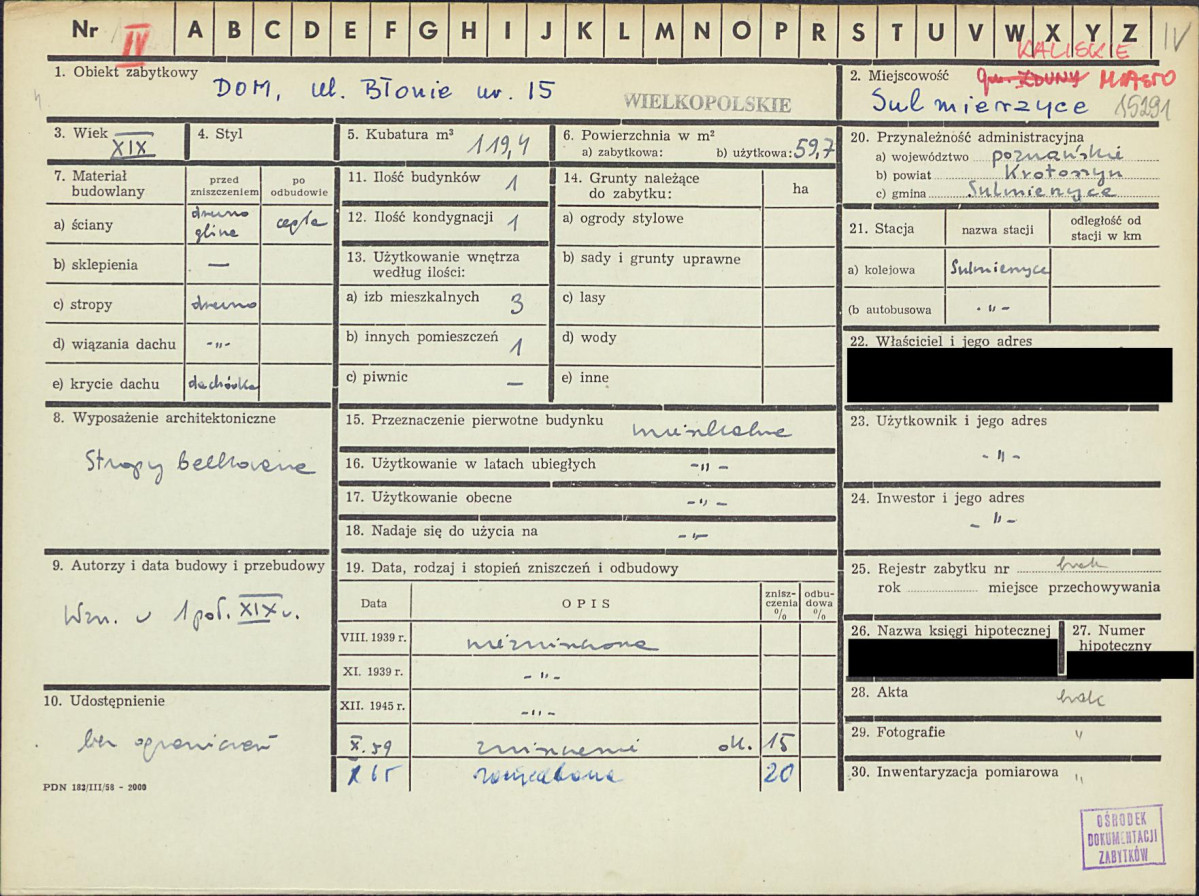 Nr IV A B C D E F G H I J K L M N O P R S T U V W X Y Z IV
KALISKIE
1. Obiekt zabytkowy
DOM, ul. Błonie nr. 15
WIELKOPOLSKIE
2. Miejscowość gm. ZDUNY MIASTO
Sulmierzyce 15291
3. Wiek
XIX
4. Styl
5. Kubatura m³ 119,4
6. Powierzchnia w m²
a) zabytkowa: b) użytkowa: 59,7
7. Materiał budowlany
przed zniszczeniem
po odbudowie
a) ściany drewno glina cegła
b) sklepienia —
c) stropy drewno
d) wiązania dachu -"-
e) krycie dachu dachówka
8. Wyposażenie architektoniczne
Stropy belkowane
9. Autorzy i data budowy i przebudowy
Wzn. w 1 poł. XIX w.
10. Udostępnienie
bez ograniczeń
PDN 183/III/58 - 2000
11. Ilość budynków 1
12. Ilość kondygnacji 1
13. Użytkowanie wnętrza
według ilości:
a) izb mieszkalnych 3
b) innych pomieszczeń 1
c) piwnic —
14. Grunty należące
do zabytku:
ha
a) ogrody stylowe
b) sady i grunty uprawne
c) lasy
d) wody
e) inne
15. Przeznaczenie pierwotne budynku mieszkalne
16. Użytkowanie w latach ubiegłych -"-
17. Użytkowanie obecne -"-
18. Nadaje się do użycia na -"-
19. Data, rodzaj i stopień zniszczeń i odbudowy
Data
OPIS
znisz-
czenia
%
odbu-
dowa
%
VIII. 1939 r. niezniszczone
XI. 1939 r. -"-
XII. 1945 r. -"-
X. 59 zniszczenie ok. 15
X 65 zaniedbane 20
20. Przynależność administracyjna
a) województwo poznańskie
b) powiat Krotoszyn
c) gmina Sulmierzyce
21. Stacja
nazwa stacji
odległość od
stacji w km
a) kolejowa Sulmierzyce
(b autobusowa -"-
22. Właściciel i jego adres
23. Użytkownik i jego adres
-"-
24. Inwestor i jego adres
-"-
25. Rejestr zabytku nr brak
rok miejsce przechowywania
26. Nazwa księgi hipotecznej
27. Numer
hipoteczny
28. Akta brak
29. Fotografie "
30. Inwentaryzacja pomiarowa "
OŚRODEK
DOKUMENTACJI
ZABYTKÓW